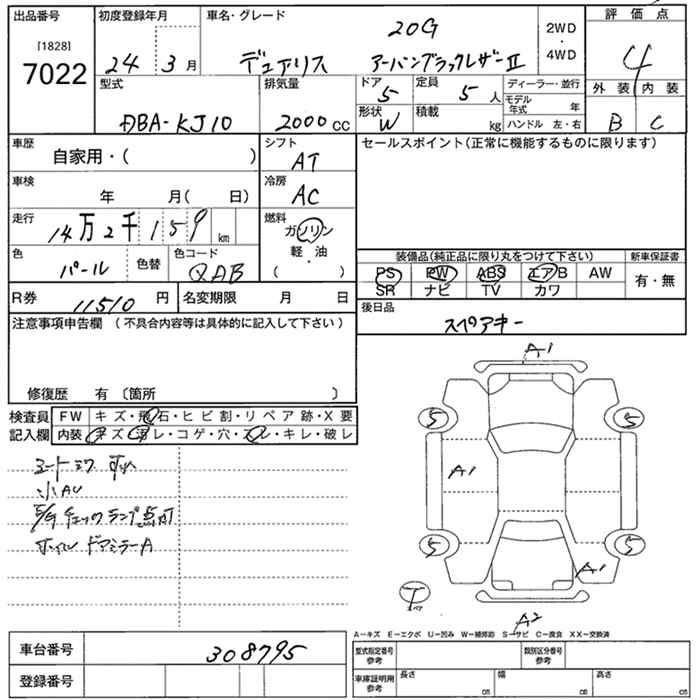 出品番号 初度登録年月 車名・グレード 20G 2WD 評価点
[1828] 7022 24 3月 デュアリス アーバンブラックレザーII 4WD 4
型式 排気量 ドア 5 定員 5人 ディーラー・並行 外装 内装
DBA-KJ10 2000cc 形状 W 積載 kg モデル年式 年 ハンドル 左・右 B C
車歴 自家用・( ) シフト AT セールスポイント(正常に機能するものに限ります)
車検 年 月( 日) 冷房 AC
走行 14万2千159km 燃料 ガソリン
色 パール 色替 色コード QAB 軽・油 ( ・ )
装備品(純正品に限り丸をつけて下さい) 新車保証書
PS PW ABS エアB AW 有・無
SR ナビ TV カワ
R券 11510円 名変期限 月 日 後日品
スペアキー
注意事項申告欄 (不具合内容等は具体的に記入して下さい)
修復歴 有 〔箇所 〕
検査員記入欄 FW キズ・飛石・ヒビ割・リペア跡・X要
内装 キズ・汚レ・コゲ・穴・スレ・キレ・破レ
小AU
チェックランプ点灯
ドアミラーA
A1
5 5
A1
5 5
A1
T
A2
A―キズ E―エクボ U―凹み W―補修跡 S―サビ C―腐食 XX―交換済
車台番号 308795 型式指定番号 参考 類別区分番号 参考
登録番号 車庫証明用 参考 長さ cm 幅 cm 高さ cm